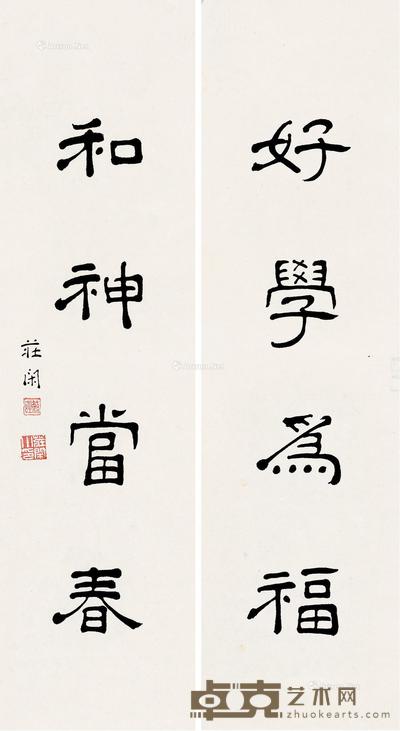 好學為福
和神當春
莊閑
卓克艺术网
zhuokearts.com